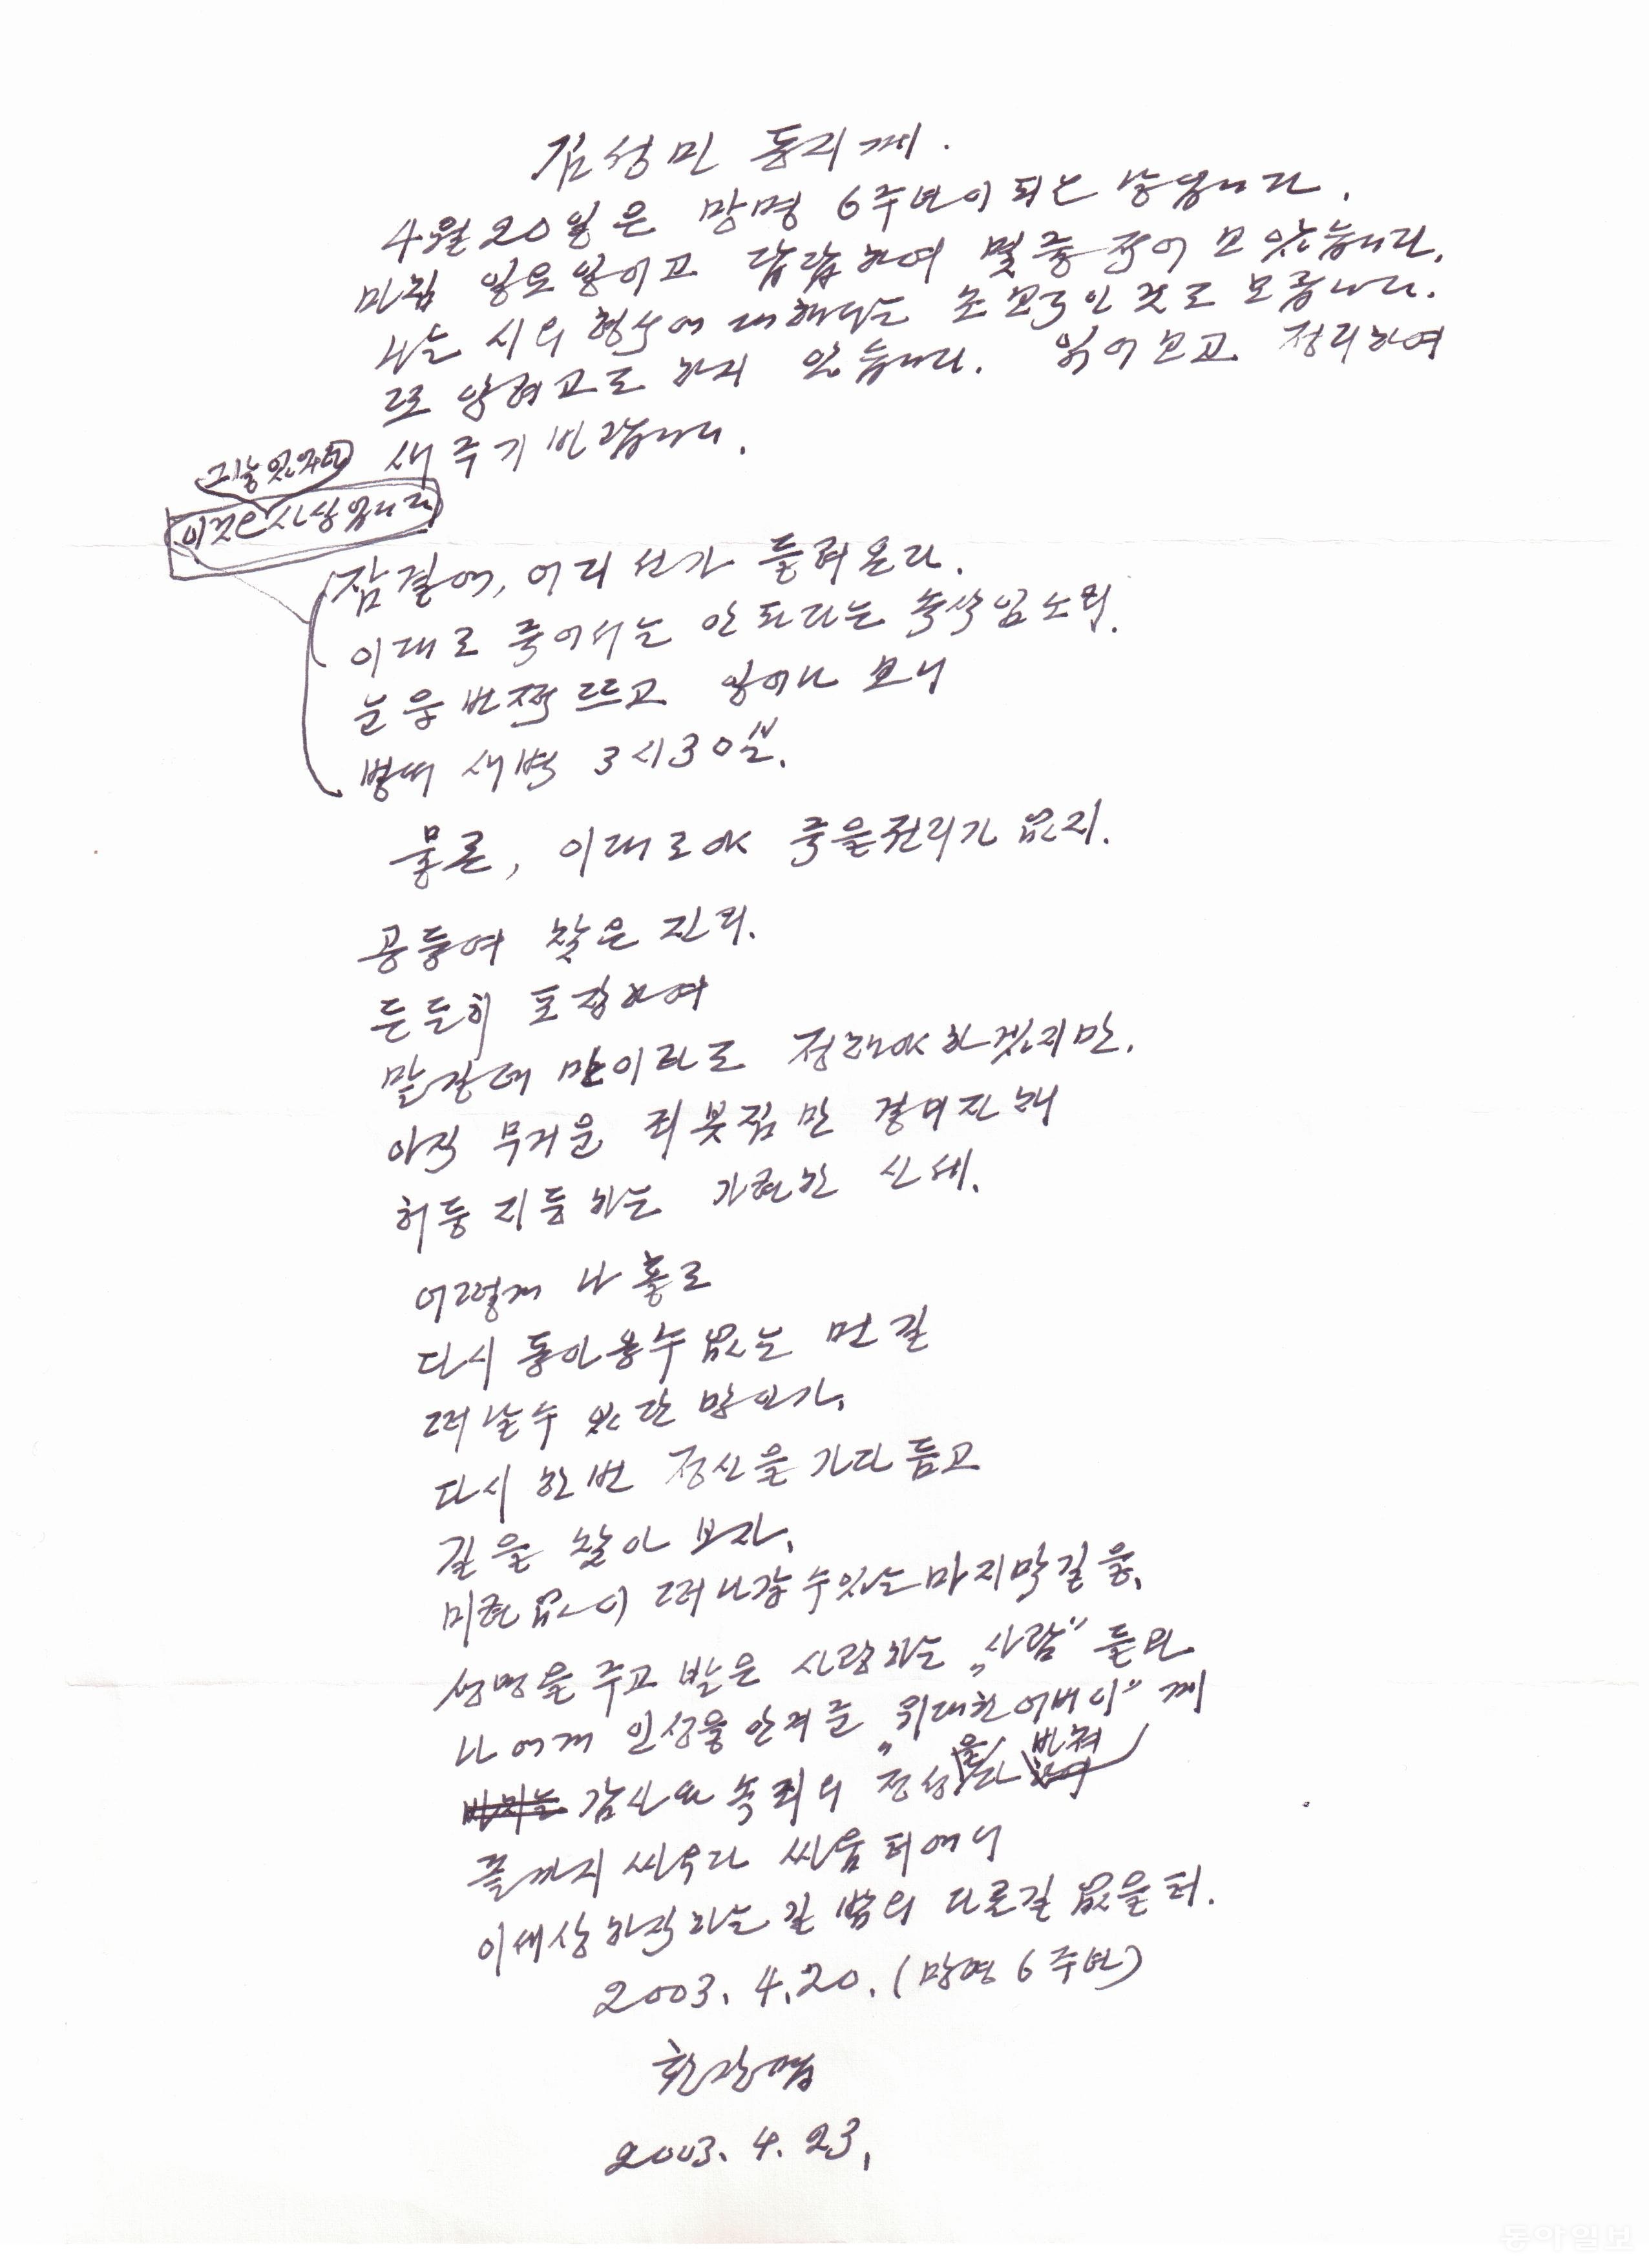 김성민 동지께.
4월 20일은 망명 6주년이 되는 날입니다.
마침 일요일이고 답답하여 몇 줄 적어 보았습니다.
나는 시의 형식에 대해서는 초보적인 것도 모릅니다.
또 알려고도 하지 않습니다. 읽어보고 정리하여
써 주기 바랍니다.
이것은 사실입니다
잠결에, 어디선가 들려온다.
이대로 죽어서는 안 된다는 속삭임 소리.
눈을 번쩍 뜨고 일어나 보니
병떠 새벽 3시30분.
물론, 이대로야 죽을 권리가 없지.
공들여 찾은 진리.
든든히 포장하여
말잔등에 만이라도 전해야 하겠지만.
아직 무거운 죄 봇짐만 걸머진 채
허둥지둥하는 가련한 신세.
어떻게 나 홀로
다시 돌아올 수 없는 먼 길
떠날 수 있단 말인가.
다시 한번 정신을 가다듬고
길을 찾아 보자.
미련없이 떠나갈 수 있는 마지막 길을.
생명을 주고 받은 사랑하는 „사람" 들과
나에게 인생을 안겨준 „위대한 어버이" 께
감사와 속죄의 정성을 바쳐
끝까지 싸우다 싸움터에서
이 세상 하직하는 길 밖의 다른 길 없을 터.
2003. 4. 20. (망명 6주년)
황장엽
2003. 4. 23.
동아일보